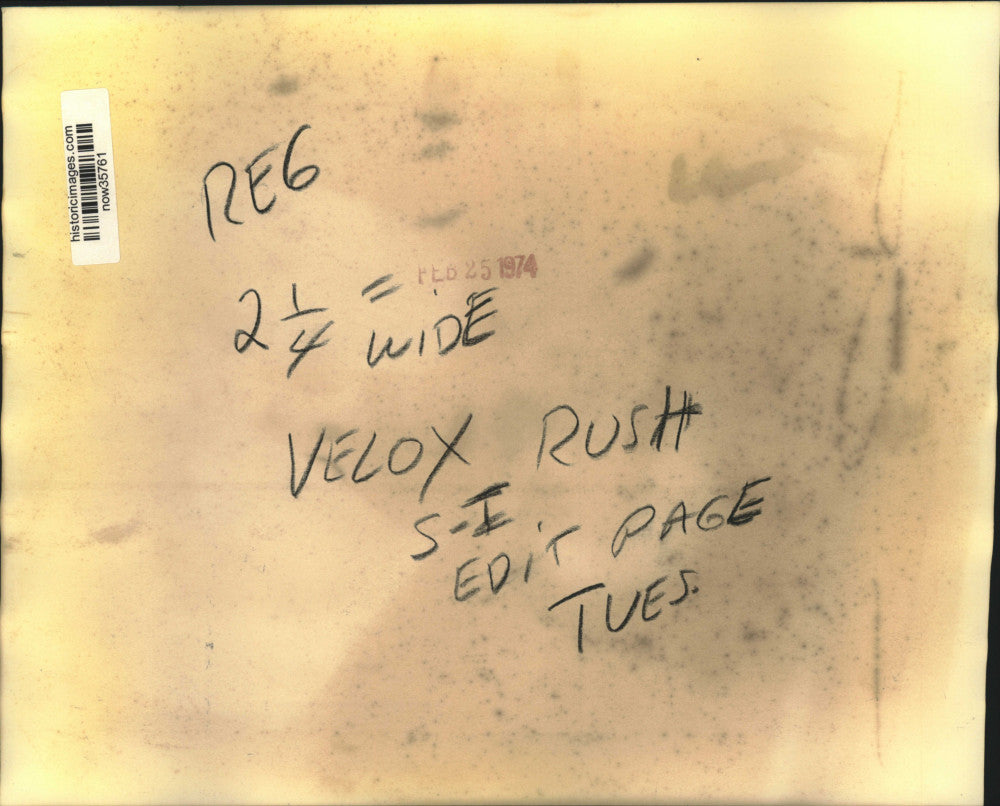 historicimages.com
now35761
REG
FEB 25 1974
2 1/4 = WIDE
VELOX RUSH
S-I
EDIT PAGE
TUES.